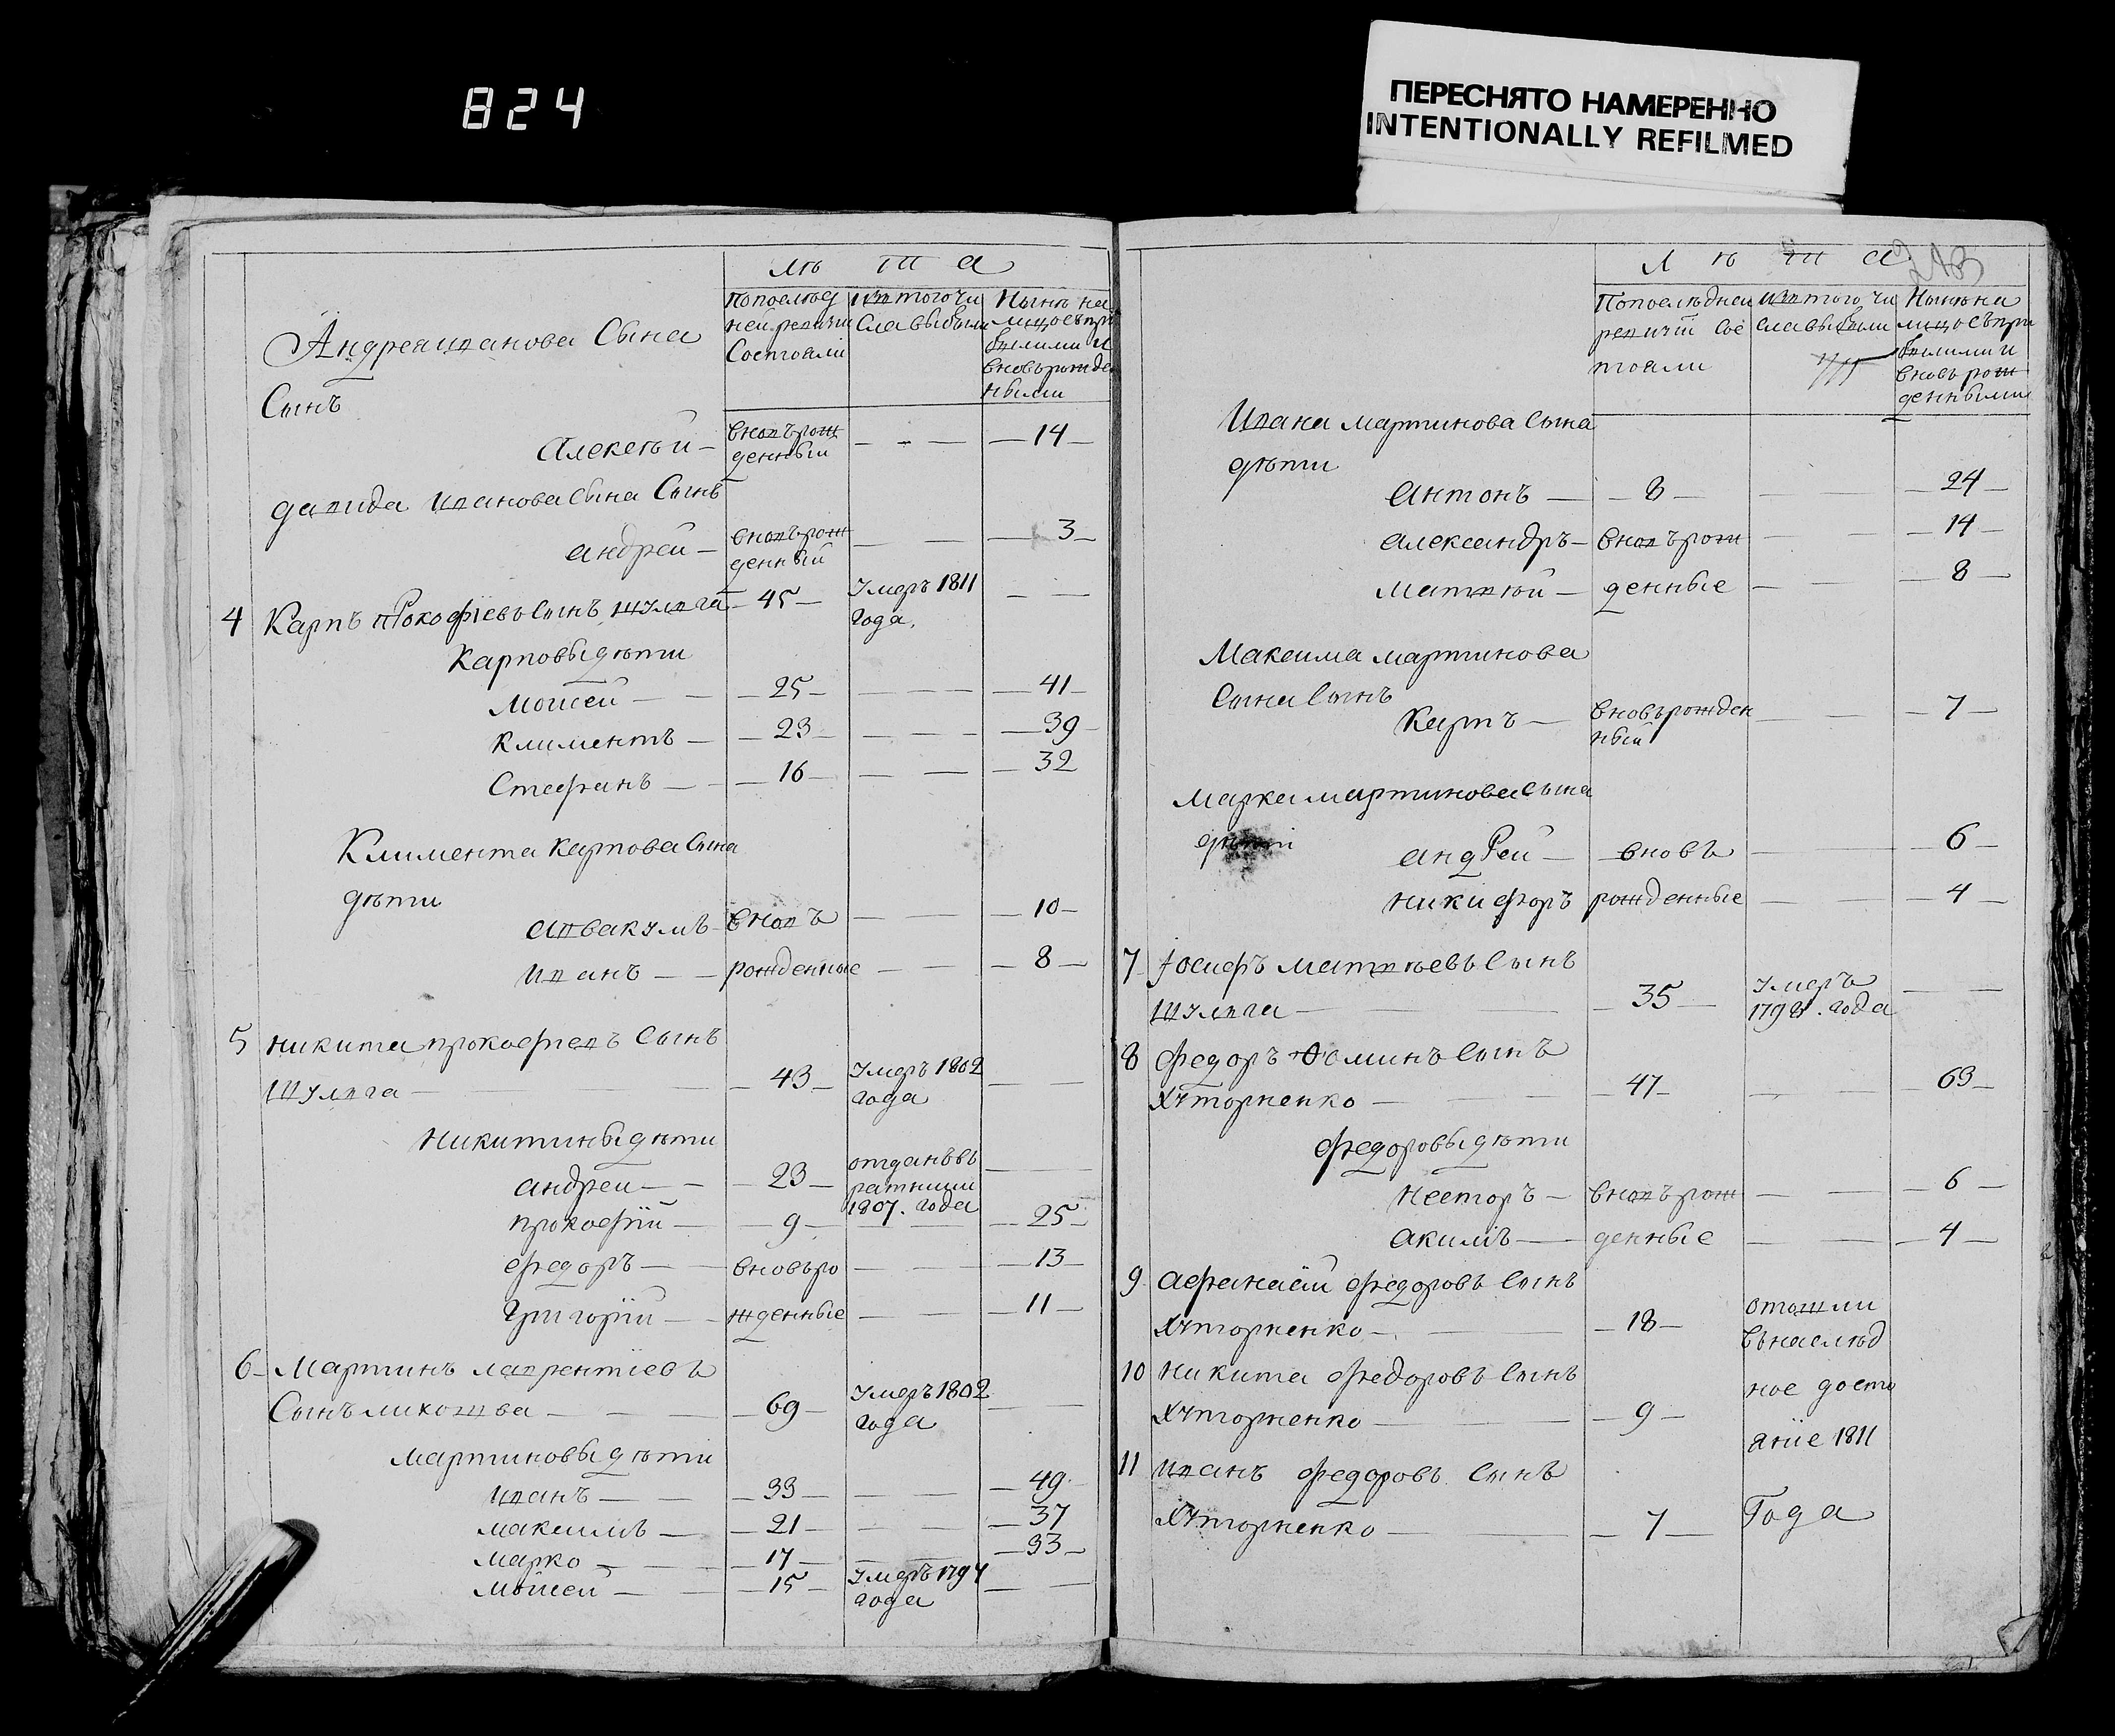 824
ПЕРЕСНЯТО НАМЕРЕННО
INTENTIONALLY REFILMED
Лѣ та
Попослѣд изтогочи Нынѣ на
ней ревизіи славыбыли лицо съпри
Состояли былими и
вновьрожде
нными
Андрея иванова Сына
Сынъ
Алексѣй — вновърож — — — 14 —
денный
давида ивановаСына Сынъ
андрей — вновърож — — — 3 —
денный
4 Карпъ прокофіевъ Сынъ шулга — 45 — умеръ 1811 — —
года.
Карповы дѣти
Моисей — — 25 — — — — 41 —
климентъ — — 23 — — — — 39 —
Стефанъ — — 16 — — — — 32
Климента карповаСына
дѣти
аввакумъ — вновъ — — — 10 —
иванъ — — рожденные — — — 8 —
5 никита прокофіевъ Сынъ
Шулга — — 43 — умеръ 1802 —
года
Никитины дѣти
андрей — — — 23 — отданъвъ —
ратники
1807. года
прокофій — — 9 — — — — 25 —
федоръ — вновъро — — — 13 —
григорій — — жденные — — — 11 —
6 Мартинъ лаврентіевъ
Сынъ — — — 69 — умеръ 1802 —
года
мартиновы дѣти
иванъ — — — 33 — — — — 49 —
максимъ — — 21 — — — 37
марко — — — 17 — — — 33 —
моисей — — 15 — умеръ 1797 — —
года
Л ѣ т а
Попослѣдней изтого чи Нынѣ на
ревизіи сос славыбыли лицо съпри
тояли былими и
вновь рож
денными
Ивана мартиноваСына
дѣти
антонъ — — 8 — — — 24 —
александръ — вновърож — — — 14 —
матвей — денные — — — 8 —
Максима мартинова
Сына Сынъ
карпъ — вновърожден — — — 7 —
ный
марка мартиноваСына
дѣти
андрей — вновъ — — 6 —
никифоръ рожденные — — — 4 —
7 іосифъ матвѣевъ Сынъ
Шулга — — — 35 — умеръ — —
года
8 федоръ Фоминъ Сынъ
Хуторненко — — — 47 — — — — 63 —
федоровы дѣти
несторъ — вновърож — — — 6 —
акимъ — денные — — — 4 —
9 афанасій федоровъ Сынъ
Хуторненко — — — 18 — отошли
вънаслѣд
10 никита федоровъ Сынъ
ное досто
Хуторненко — — — 9 —
яніе 1811
11 иванъ федоровъ Сынъ
Хуторненко — — — 7 — Года